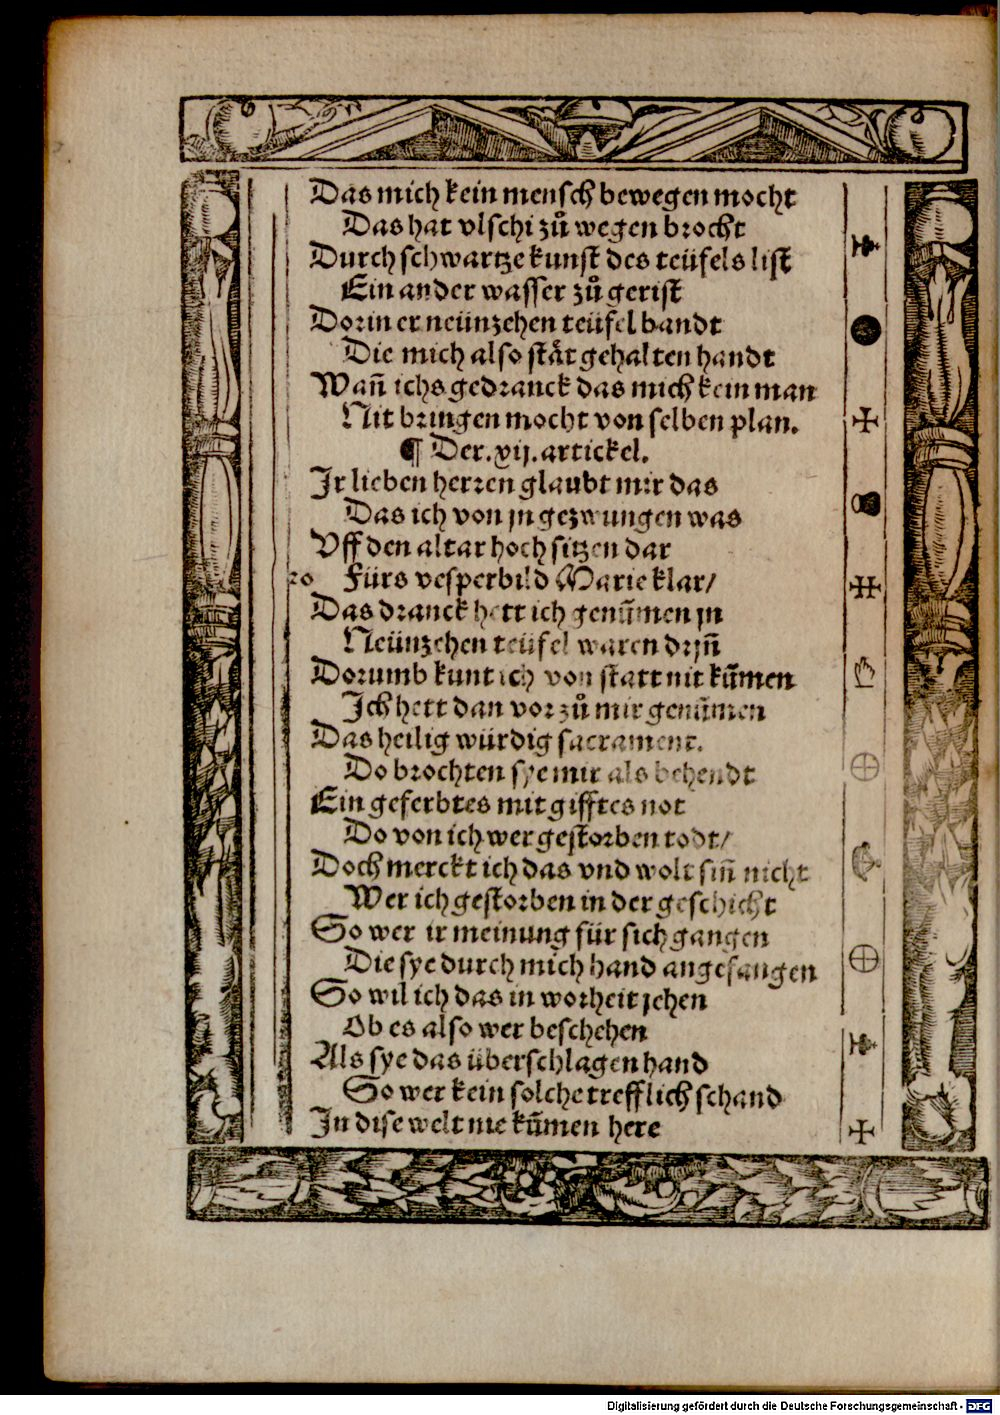 Das mich kein mensch bewegen mocht
Das hat vlschi zů wegen brocht
Durch schwartze kunst des teüfels list
Ein ander wasser zů gerist
Dorin er neünzehen teüfel bandt
Die mich also stät gehalten handt
Wañ ichs gedranck das mich kein man
Nit bringen mocht von selben plan.
¶ Der. xij. artickel.
Ir lieben herren glaubt mir das
Das ich von jn gezwungen was
Vff den altar hoch sitzen dar
20 Fürs vesperbild Marie klar/
Das dranck hett ich genũmen jn
Neünzehen teüfel waren drjñ
Dorumb kunt ich von statt nit kũmen
Ich hett dan vor zů mir genũmen
Das heilig würdig sacrament.
Do brochten sye mir als behendt
Ein geferbtes mit gifftes not
Do von ich wer gestorben todt/
Doch merckt ich das vnd wolt sin̄ nicht
Wer ich gestorben in der geschicht
So wer ir meinung für sich gangen
Die sye durch mich hand angefangen
So wil ich das in worheit jehen
Ob es also wer beschehen
Als sye das überschlagen hand
So wer kein solche trefflich schand
In dise welt nie kũmen here
Digitalisierung gefördert durch die Deutsche Forschungsgemeinschaft - DFG